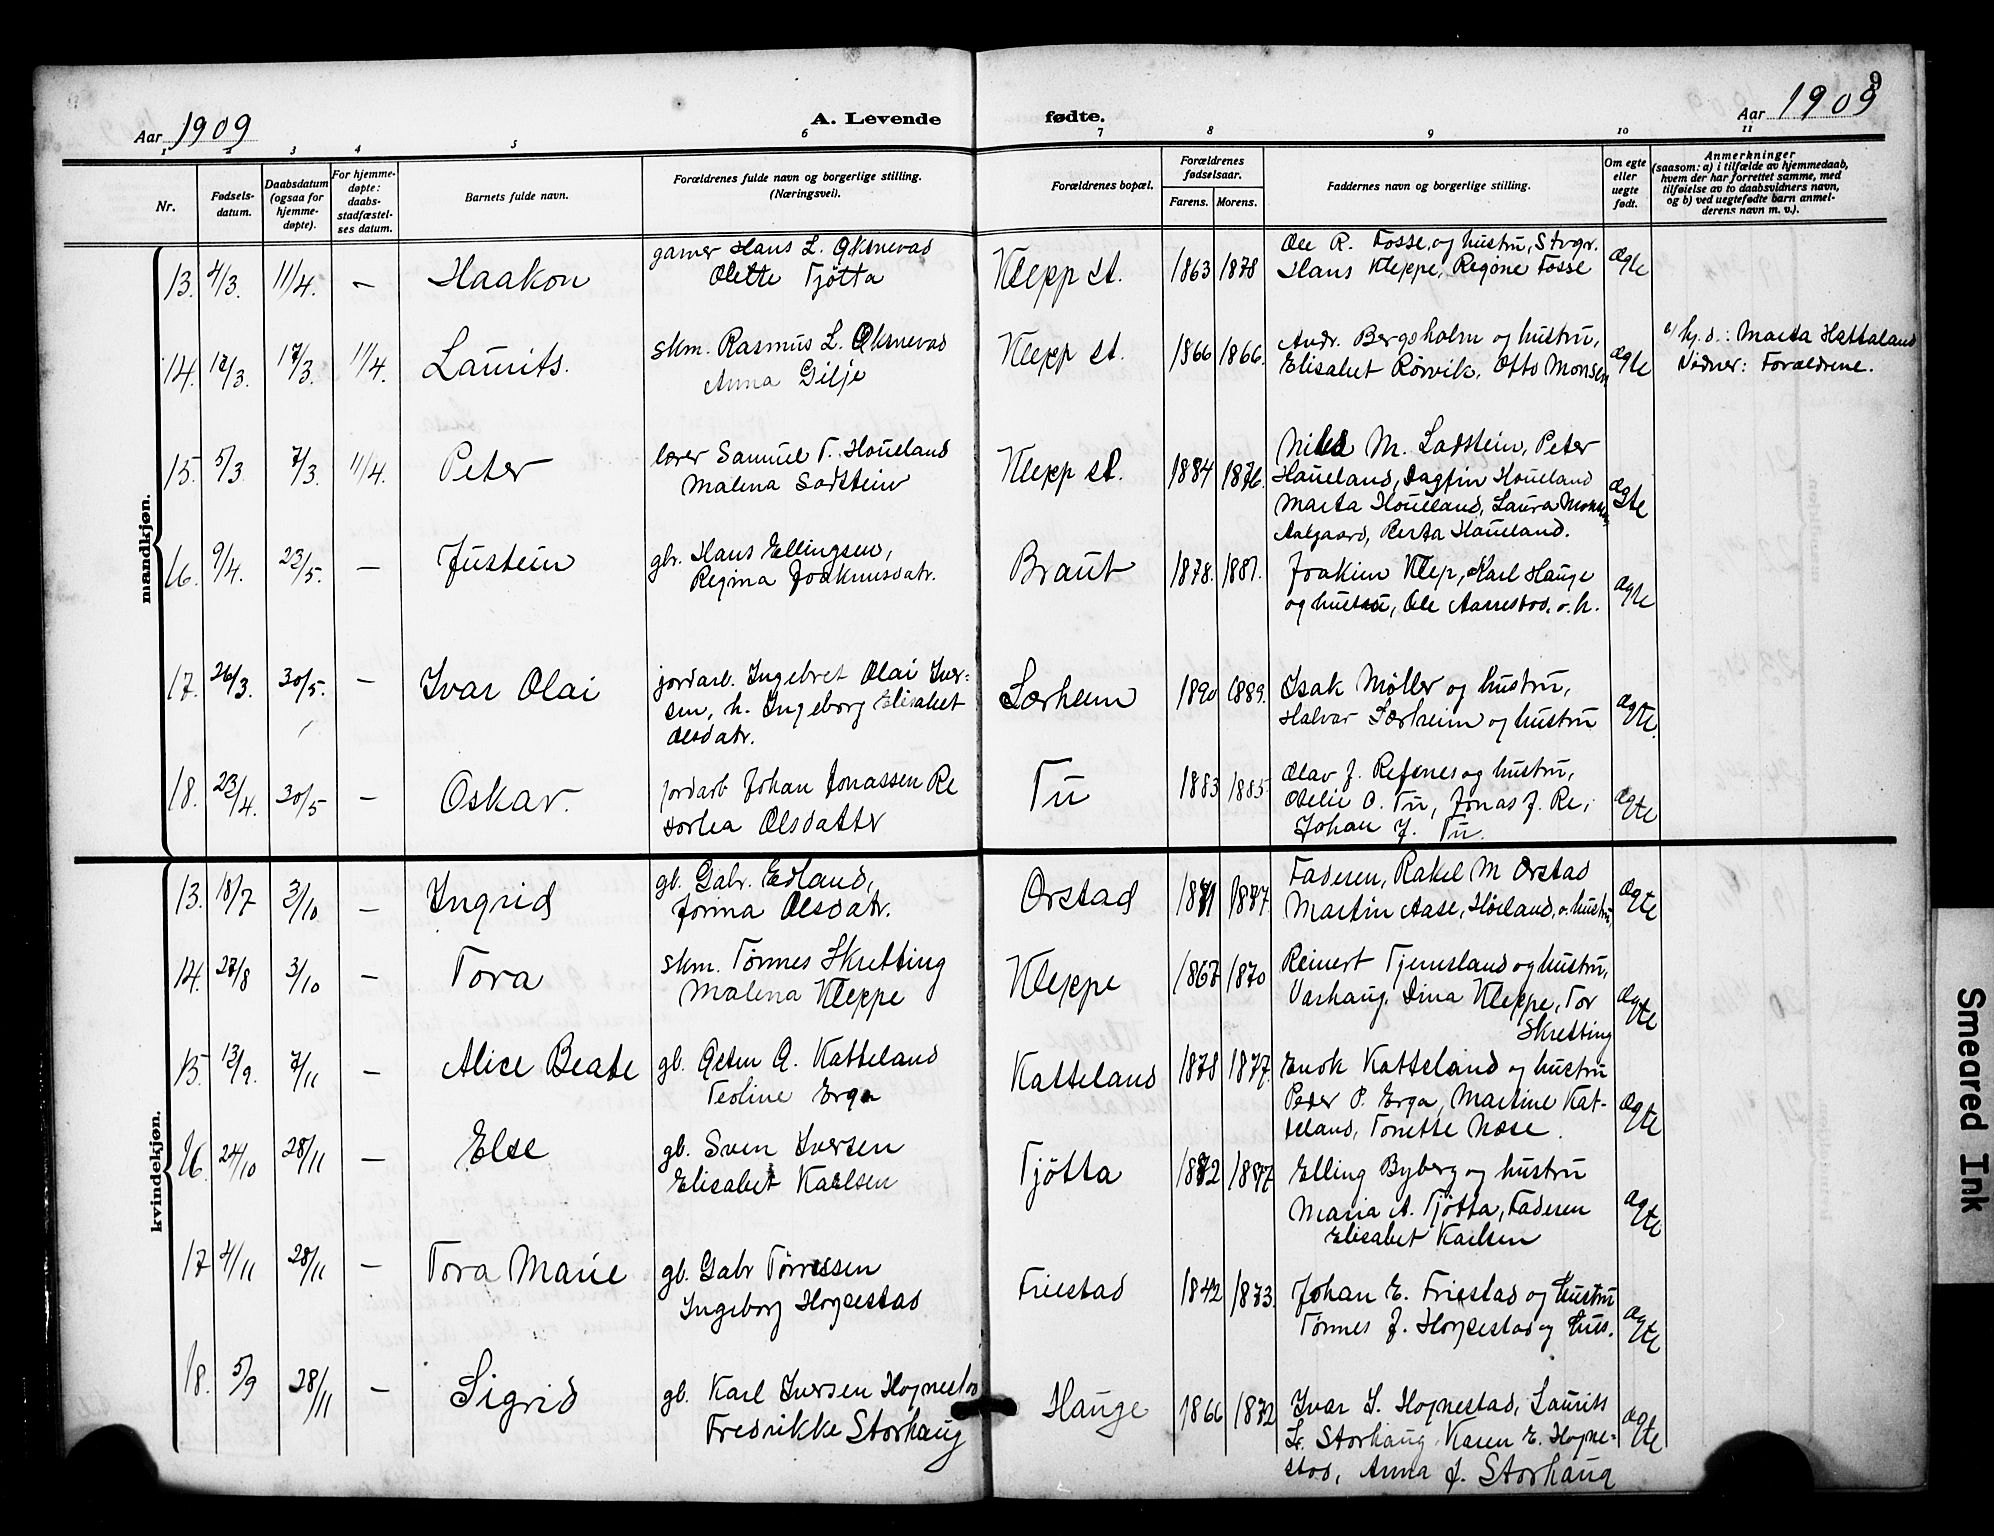 9
Aar 1909
A. Levende
fødte.
Aar 1909
1 2 3 4 5 6 7 8 9 10 11
Nr.
Fødsels-
datum.
Daabsdatum
(ogsaa for
hjemme-
døpte).
For hjemme-
døpte:
daabs-
stadfæstel-
ses datum.
Barnets fulde navn.
Forældrenes fulde navn og borgerlige stilling.
(Næringsvei).
Forældrenes bopæl.
Forældrenes
fødselsaar.
Farens. Morens.
Faddernes navn og borgerlige stilling.
Om egte
eller
uegte
født.
Anmerkninger
(saasom: a) i tilfælde av hjemmedaab,
hvem der har forrettet samme, med
tilføielse av to daabsvidners navn,
og b) ved uegtefødte barn anmel-
derens navn m. v.).
mandkjøn.
13. 4/3. 11/4. — Haakon
garver Hans L. Øksnevad
Olette Tjøtta
Klepp st. 1863 1878
Ole R. Fosse og hustru, Stvgr.
Hans Kleppe, Regine Fosse
ægte
14. 12/3. 17/3. 11/4. Laurits.
skm. Rasmus L. Øksnevad
Anna Gilje
Klepp st. 1866 1866.
Andr. Bergsholm og hustru,
Elisabet Rørvik, Otto Monsen
ægte
a) hj.d.: Marta Hattaland
Vidner: Forældrene.
15. 5/3. 7/3. 11/4. Peter
lærer Samuel T. Houeland
Malena Sadstein
Klepp st. 1884 1876.
Nils M. Ladstein, Peter
Haueland, Dagfin Houeland
Marta Houeland, Laura Monsen
Aalgaard, Berta Haueland.
ægte
16. 9/4. 23/5. — Justein
gbr. Hans Ellingsen,
Regina Joakimsdatr.
Braut 1878. 1881.
Joakim Klep, Karl Hauge
og hustru, Ole Aarrestad o. h.
ægte
17. 26/3. 30/5. — Ivar Olai
jordarb. Ingebret Olai Iver-
sen, h. Ingeborg Elisabet
Olsdatr.
Lærheim 1890 1889.
Isak Møller og hustru,
Halvar Lærheim og hustru
ægte.
18. 23/4. 30/5 — Oskar.
jordarb Johan Jonassen Re
Dortea Olsdatter
Tu 1883 1885.
Olav J. Refsnes og hustru,
Otelie O. Tu, Jonas J. Re,
Johan J. Tu.
ægte
kvindekjøn.
13. 18/7 3/10 — Ingrid
gb. Gabr. Edland,
Jorina Olsdatr.
Orstad 1871 1877.
Faderen, Rakel M Orstad
Martin Aase, Høiland, o. hustru,
ægte
14. 27/8 3/10 — Tora
skm. Tønnes Skretting
Malena Kleppe
Kleppe 1867 1870
Reinert Tjemsland og hustru,
Varhaug, Dina Kleppe, Tor
Skretting
ægte
15. 13/9. 7/11 — Alice Beate
gb. Østen A. Katteland
Teoline Erga
Katteland 1878 1877.
Enok Katteland og hustru
Peder P. Erga, Martine Kat-
teland, Tonette Næse.
ægte
16. 24/10 28/11 — Else
gb. Sven Iversen
Elisabet Karlsen
Tjøtta 1882 1887.
Elling Byberg og hustru
Maria A. Tjøtta, Faderen
Elisabet Karlsen
ægte
17 4/11 28/11 — Tora Marie
gb. Gabr Tørressen
Ingeborg Hognestad
Friestad 1842 1873.
Johan E. Friestad og hustru
Tønnes J. Hognestad og hus.
ægte
18. 5/9 28/11 — Sigrid
gb. Karl Iversen Hognestad
Fredrikke Storhaug
Hauge 1866 1872
Ivar S. Hognestad, Laurits
L. Storhaug, Karen E. Hogne-
stad, Anna J. Storhaug
ægte
Smeared Ink